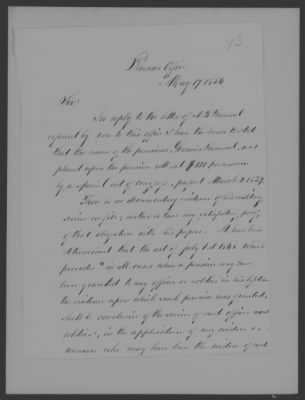 43
Pension Office
May 17 1854
Sir
In reply to the letter of A. D.
referred by you to this office I have the honor to state
that the name of the pensioner Dennis was
placed upon the pension roll at $ per annum
by a special act of Congress, passed March 3 1839.
There is no documentary evidence of his military
service on file; neither is there any satisfactory proof
of that allegation with his papers. It has been
determined that the act of July 1st 1848 which
provides "in all cases where a pension may have
been granted to any officer or soldier in his lifetime
the evidence upon which such pension was granted
shall be conclusive of the service of such officer or
soldier, in the application of any widow or
woman who may have been the widow of such